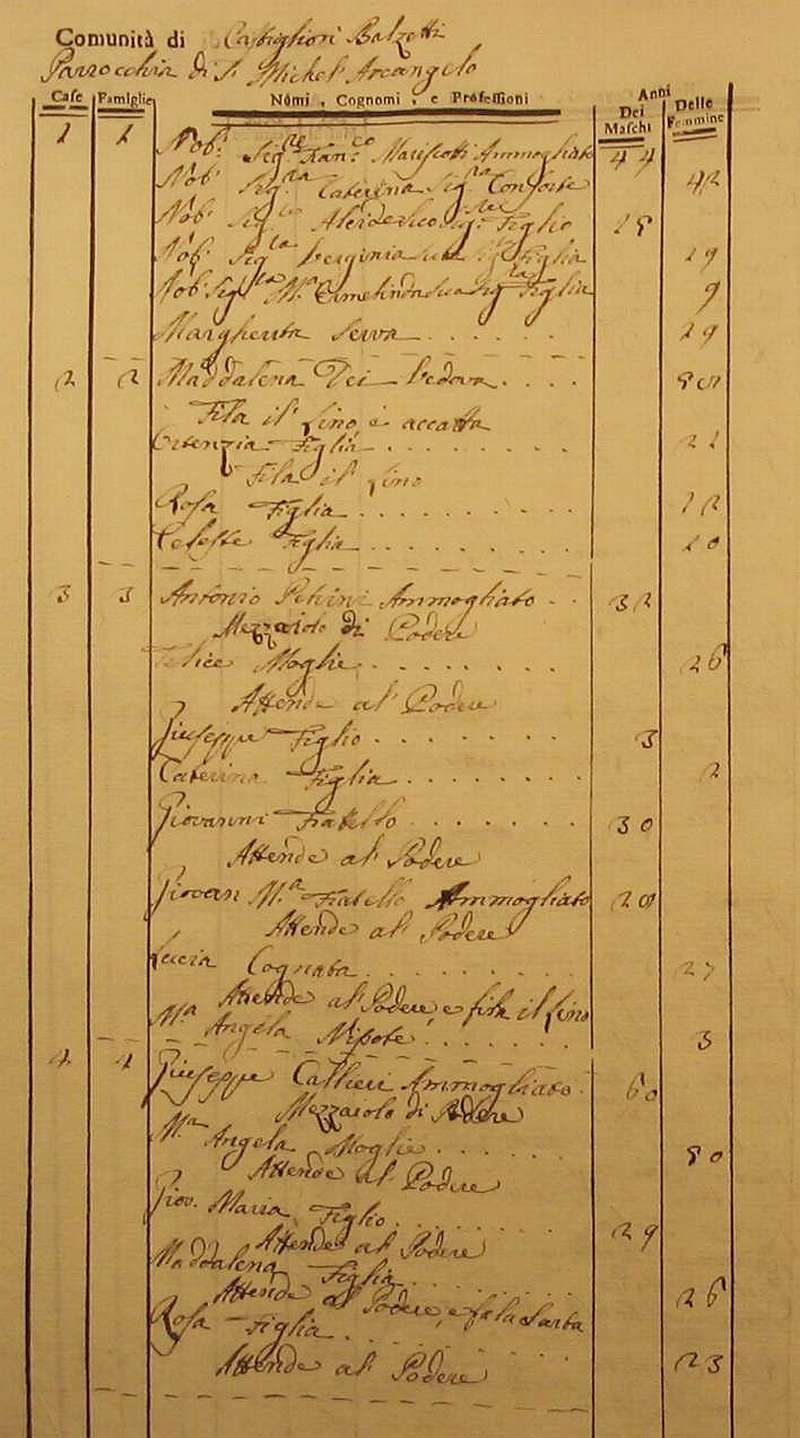 Comunità di Castiglion Balzetti
Parrocchia di S. Michel' Arcangelo
Case Famiglie Nomi, Cognomi, e Professioni Anni Dei Maschi Delle Femmine
1 1 Nob: Sig.re Fran.co Ammogliato 44
Nob: Sig.ra Caterina Consorte 42
Nob: Sig. Figlio 18
Nob: Sig.ra Figlia 19
Nob: Sig.ra M.a Figlia 9
Margherita Serva 29
2 2 Maddalena Dei Vedova 50
Fila il lino e accatta
Figlia 21
Fila il lino
Rosa Figlia 12
Celeste Figlia 10
3 3 Antonio Ammogliato 32
Mezzaiolo di Podere
Moglie 26
Attende al Podere
Giuseppe Figlio 3
Caterina Figlia 2
Giovanni Fratello 30
Attende al Podere
Giovan M.a Fratello Ammogliato 20
Attende al Podere
Lucia Cognata 27
Attende al Podere, e fila il lino
M.a Angela Nipote 3
4 4 Giuseppe Ammogliato 60
Mezzaiolo di Podere
M.a Angela Moglie 50
Attende al Podere
Giov. Maria Figlio 29
Attende al Podere
Maddalena Figlia 26
Attende al Podere, e fa la Sarta
Rosa Figlia 23
Attende al Podere